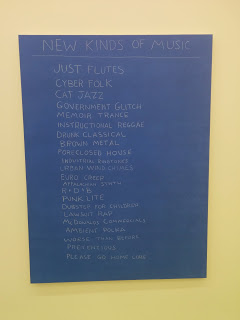 NEW KINDS OF MUSIC
JUST FLUTES
CYBER FOLK
CAT JAZZ
GOVERNMENT GLITCH
MEMOIR TRANCE
INSTRUCTIONAL REGGAE
DRUNK CLASSICAL
BROWN METAL
FORECLOSED HOUSE
INDUSTRIAL RINGTONES
URBAN WIND CHIMES
EURO CRIED
APPALACHIAN SYNTH
R+D+B
PUNK LITE
DUBSTEP FOR CHILDREN
LAWSUIT RAP
MCDONALDS COMMERCIALS
AMBIENT POLKA
WORSE THEN BEFORE
PLEASE GO HOME